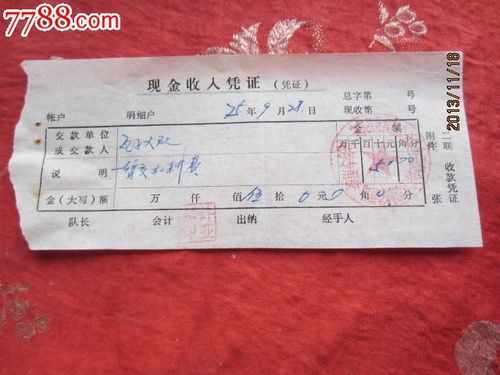 7788.com
现金收入凭证(凭证)
总字第 号
帐户 明细户 75年9月28日 现收第 号
交款单位
或交款人
金 额
万千百十元角分
说 明 暂交水料费
5 0 00
金(大写)额 万 仟 佰 伍 拾 0 元 0 角 0 分
附件 张
二联 收款凭证
队长 会计 出纳 经手人
2013/11/18